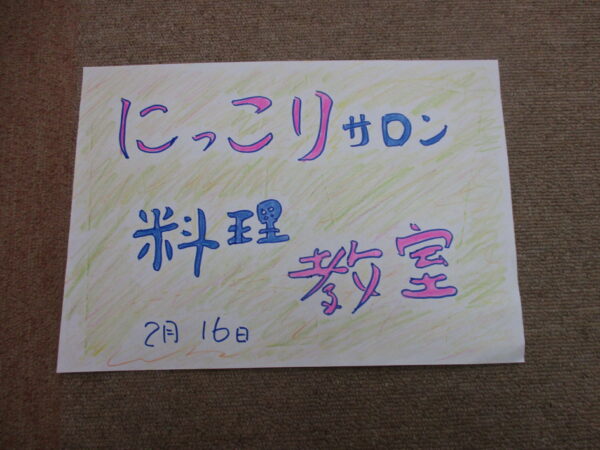 にっこりサロン
料理
教室
2月16日